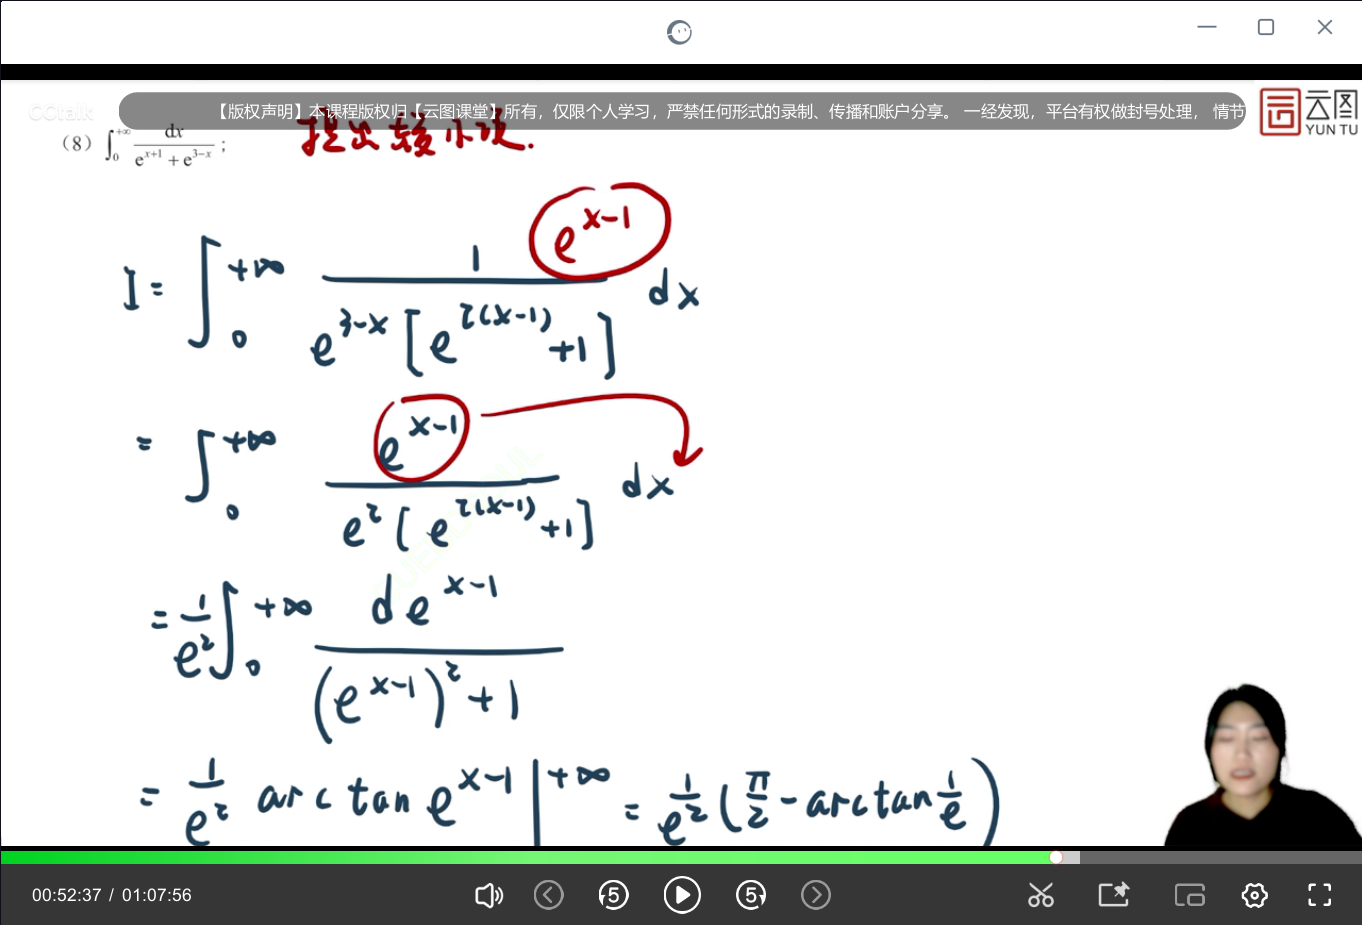 CCtalk
【版权声明】本课程版权归【云图课堂】所有，仅限个人学习，严禁任何形式的录制、传播和账户分享。 一经发现，平台有权做封号处理，情节
云图
YUN TU
(8) ∫₀^{+∞} dx / (e^{x+1} + e^{3-x}) ;
提出较小项.
I = ∫₀^{+∞} 1 e^{x-1} / (e^{3-x} [e^{2(x-1)} + 1]) dx
= ∫₀^{+∞} e^{x-1} / (e² [e^{2(x-1)} + 1]) dx
= 1/e² ∫₀^{+∞} de^{x-1} / ((e^{x-1})² + 1)
= 1/e² arctan e^{x-1} |^{+∞} = 1/e² (π/2 - arctan 1/e)
00:52:37 / 01:07:56
5 5